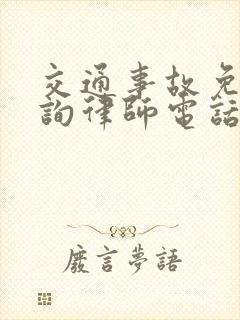 交通事故免
詢律師電話
廢言夢語